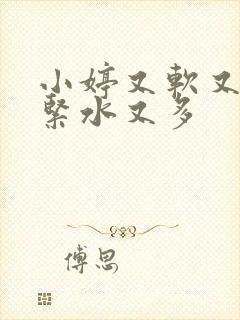 小婷又軟又
緊水又多
傅思